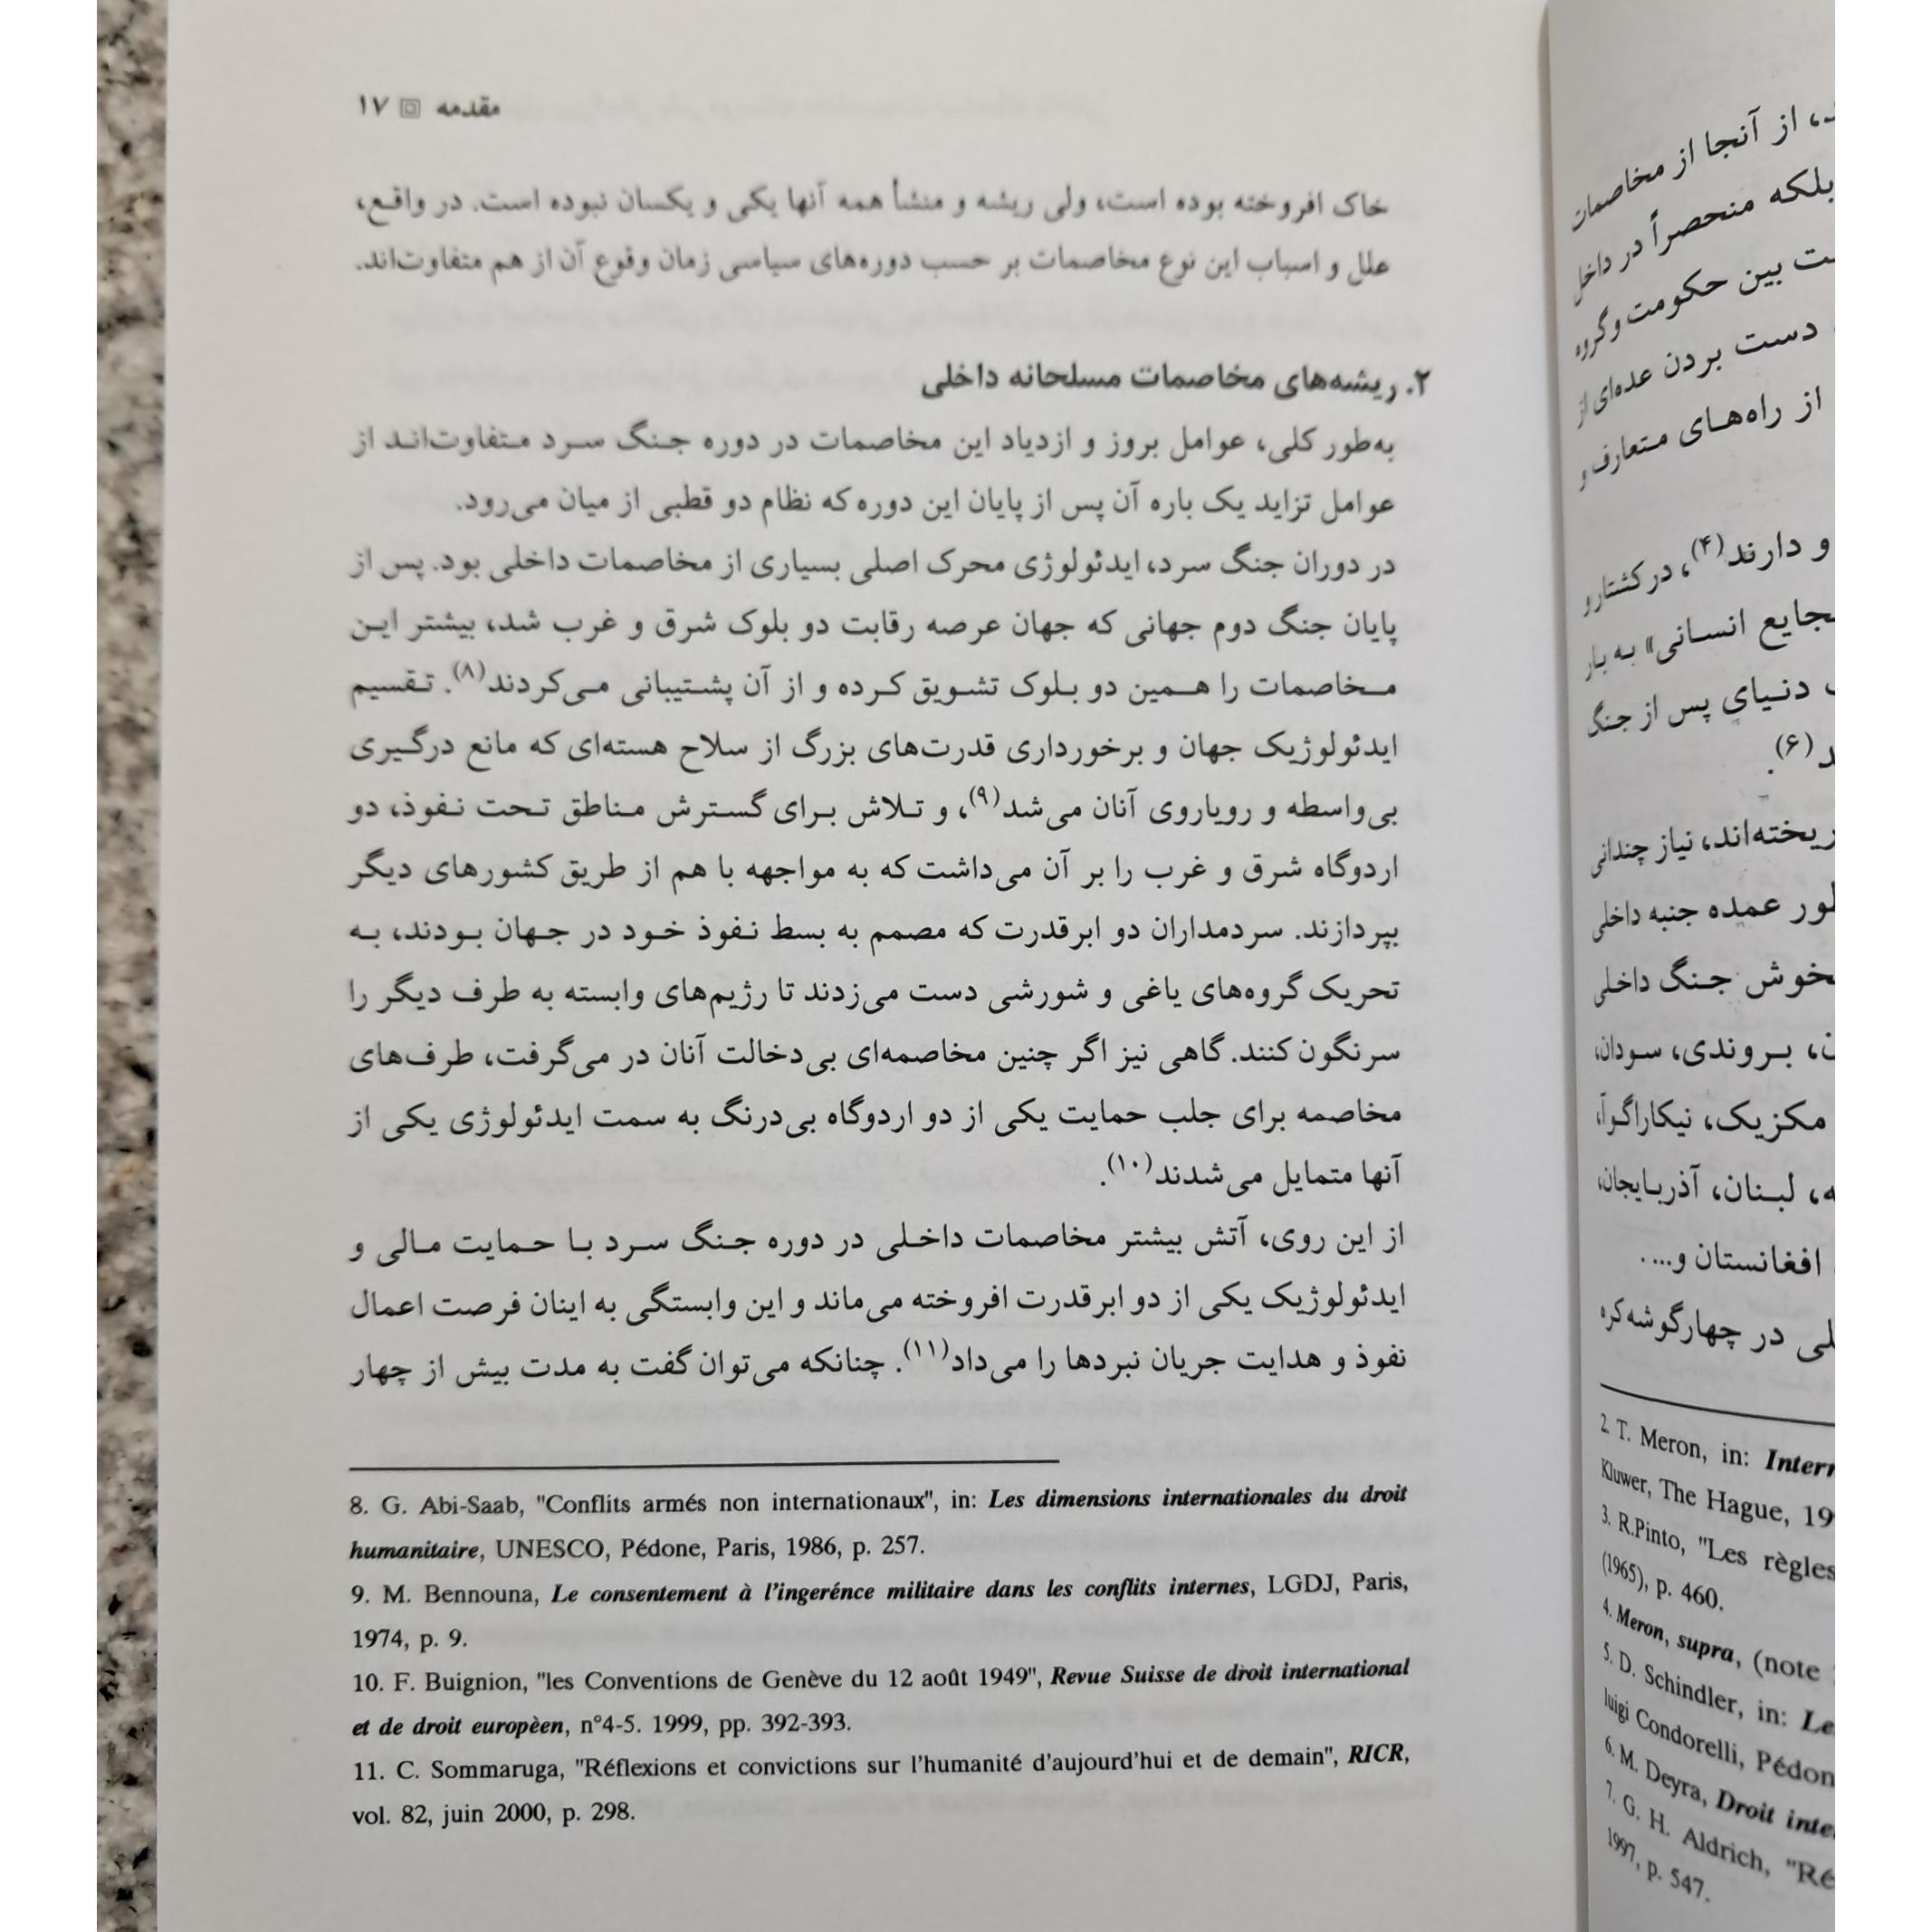 مقدمه ۱۷
خاک افروخته بوده است، ولی ریشه و منشأ همه آنها یکی و یکسان نبوده است. در واقع،
علل و اسباب این نوع مخاصمات بر حسب دوره‌های سیاسی زمان وقوع آن از هم متفاوت‌اند.
۲. ریشه‌های مخاصمات مسلحانه داخلی
به‌طور کلی، عوامل بروز و ازدیاد این مخاصمات در دوره جنگ سرد متفاوت‌اند از
عوامل تزاید یک باره آن پس از پایان این دوره که نظام دو قطبی از میان می‌رود.
در دوران جنگ سرد، ایدئولوژی محرک اصلی بسیاری از مخاصمات داخلی بود. پس از
پایان جنگ دوم جهانی که جهان عرصه رقابت دو بلوک شرق و غرب شد، بیشتر این
مخاصمات را همین دو بلوک تشویق کرده و از آن پشتیبانی می‌کردند(۸). تقسیم
ایدئولوژیک جهان و برخورداری قدرت‌های بزرگ از سلاح هسته‌ای که مانع درگیری
بی‌واسطه و رویاروی آنان می‌شد(۹)، و تلاش برای گسترش مناطق تحت نفوذ، دو
اردوگاه شرق و غرب را بر آن می‌داشت که به مواجهه با هم از طریق کشورهای دیگر
بپردازند. سردمداران دو ابرقدرت که مصمم به بسط نفوذ خود در جهان بودند، به
تحریک گروه‌های یاغی و شورشی دست می‌زدند تا رژیم‌های وابسته به طرف دیگر را
سرنگون کنند. گاهی نیز اگر چنین مخاصمه‌ای بی‌دخالت آنان در می‌گرفت، طرف‌های
مخاصمه برای جلب حمایت یکی از دو اردوگاه بی‌درنگ به سمت ایدئولوژی یکی از
آنها متمایل می‌شدند(۱۰).
از این روی، آتش بیشتر مخاصمات داخلی در دوره جنگ سرد با حمایت مالی و
ایدئولوژیک یکی از دو ابرقدرت افروخته می‌ماند و این وابستگی به اینان فرصت اعمال
نفوذ و هدایت جریان نبردها را می‌داد(۱۱). چنانکه می‌توان گفت به مدت بیش از چهار
8. G. Abi-Saab, "Conflits armés non internationaux", in: Les dimensions internationales du droit
humanitaire, UNESCO, Pédone, Paris, 1986, p. 257.
9. M. Bennouna, Le consentement à l'ingerénce militaire dans les conflits internes, LGDJ, Paris,
1974, p. 9.
10. F. Buignion, "les Conventions de Genève du 12 août 1949", Revue Suisse de droit international
et de droit europèen, n°4-5. 1999, pp. 392-393.
11. C. Sommaruga, "Réflexions et convictions sur l'humanité d'aujourd'hui et de demain", RICR,
vol. 82, juin 2000, p. 298.
، از آنجا از مخاصمات
بلکه منحصراً در داخل
بین حکومت و گروه
دست بردن عده‌ای از
از راه‌های متعارف و
و دارند(۴)، در کشتار و
انسانی» به بار
دنیای پس از جنگ
(۶).
ریخته‌اند، نیاز چندانی
عمده جنبه داخلی
جنگ داخلی
، بروندی، سودان،
مکزیک، نیکاراگوآ،
، لبنان، آذربایجان،
افغانستان و....
در چهارگوشه کره
2. T. Meron, in:
Kluwer, The Hague,
3. R.Pinto, "Les règles
(1965), p. 460.
4. Meron, supra, (note
5. D. Schindler, in:
luigi Condorelli,
6. M. Deyra, Droit
7. G. H. Aldrich,
1997, p. 547.